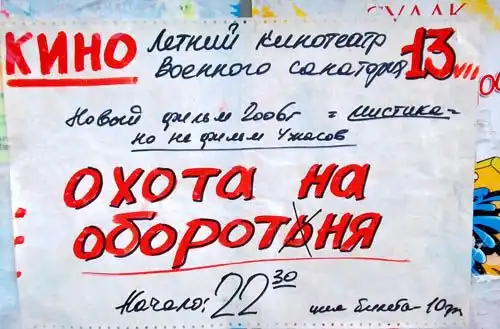 СУДАК
КИНО Летний кинотеатр 13 VIII
военного санатория
Новый фильм 2006г = мистика =
но не фильм ужасов
ОХОТА НА
ОБОРОТНЯ
Начало: 22 30 цена билета - 10 гр